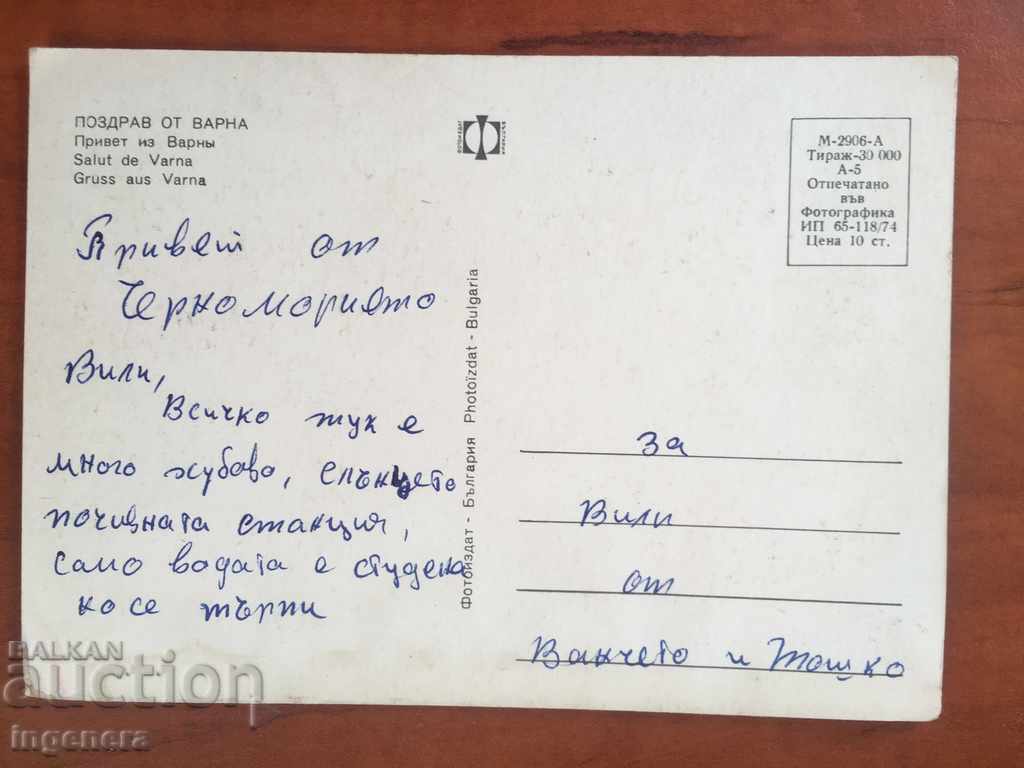 ПОЗДРАВ ОТ ВАРНА
Привет из Варны
Salut de Varna
Gruss aus Varna
ФОТОИЗДАТ
М-2906-А
Тираж-30 000
А-5
Отпечатано
във
Фотографика
ИП 65-118/74
Цена 10 ст.
Привет от
Черноморието
Вили,
Всичко тук е
много хубаво, слънцето
почивната станция,
само водата е студена
но се търпи
Фотоиздат - България Photoïzdat - Bulgaria
за
Вили
от
Ванчето и Тошко
BALKAN
auction
ingenera